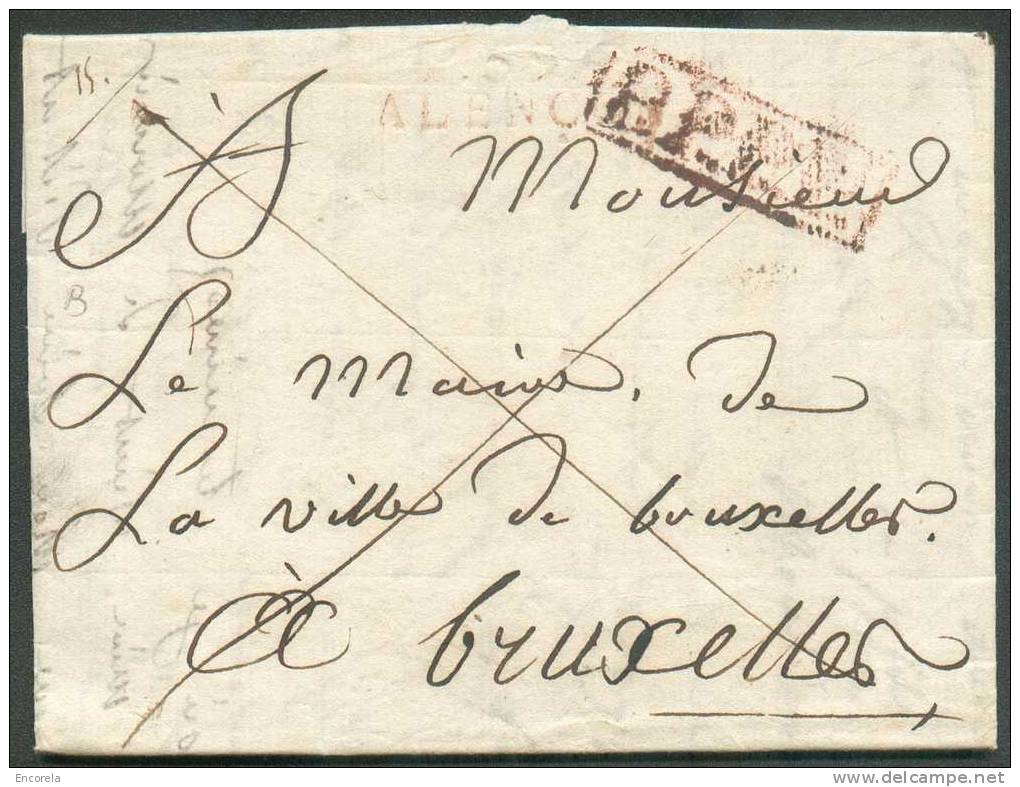 15.
ALENC
P.P.
À Monsieur
B
Le Maire. de
La ville de bruxelles.
à bruxelles
Encorela
www.delcampe.net